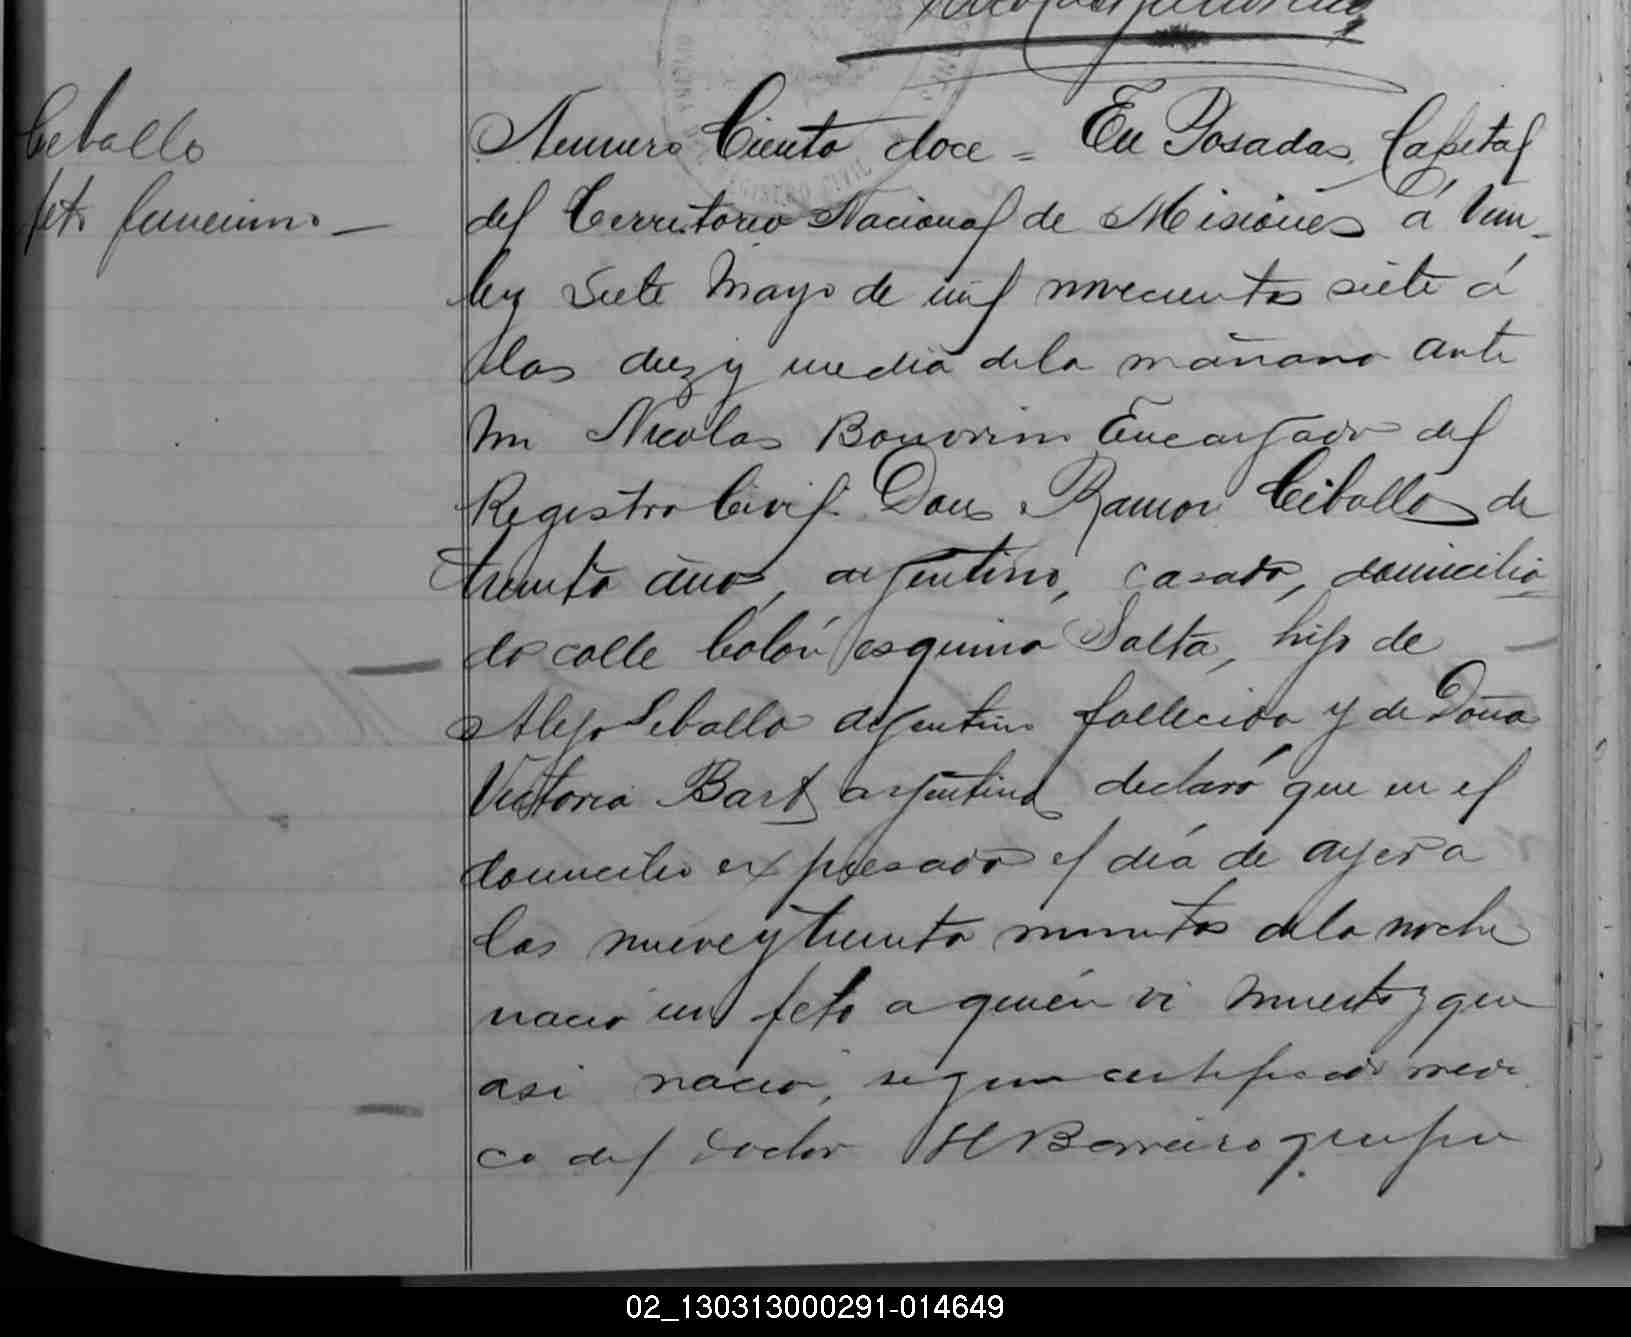 Ceballo
feto femenino —
Numero Ciento doce = En Posadas, Capital
del Territorio Nacional de Misiones á Vein-
ley Siete Mayo de mil novecientos siete á
las diez y media de la mañana ante
mi Nicolas Bonorini Encargado del
Registro Civil Don Ramon Ceballo de
treinta años, argentino, casado, domicilia
do calle Colón esquina Salta, hijo de
Alejo Seballo argentino fallecido y de Doña
Victoria Bart argentina declaró que en el
domicilio expresado el día de ayer a
las nueve y treinta minutos de la noche
nacio un feto a quién vi muerto y que
asi nacio, segun certificado medi
co del doctor H Barreiro que
02_130313000291-014649